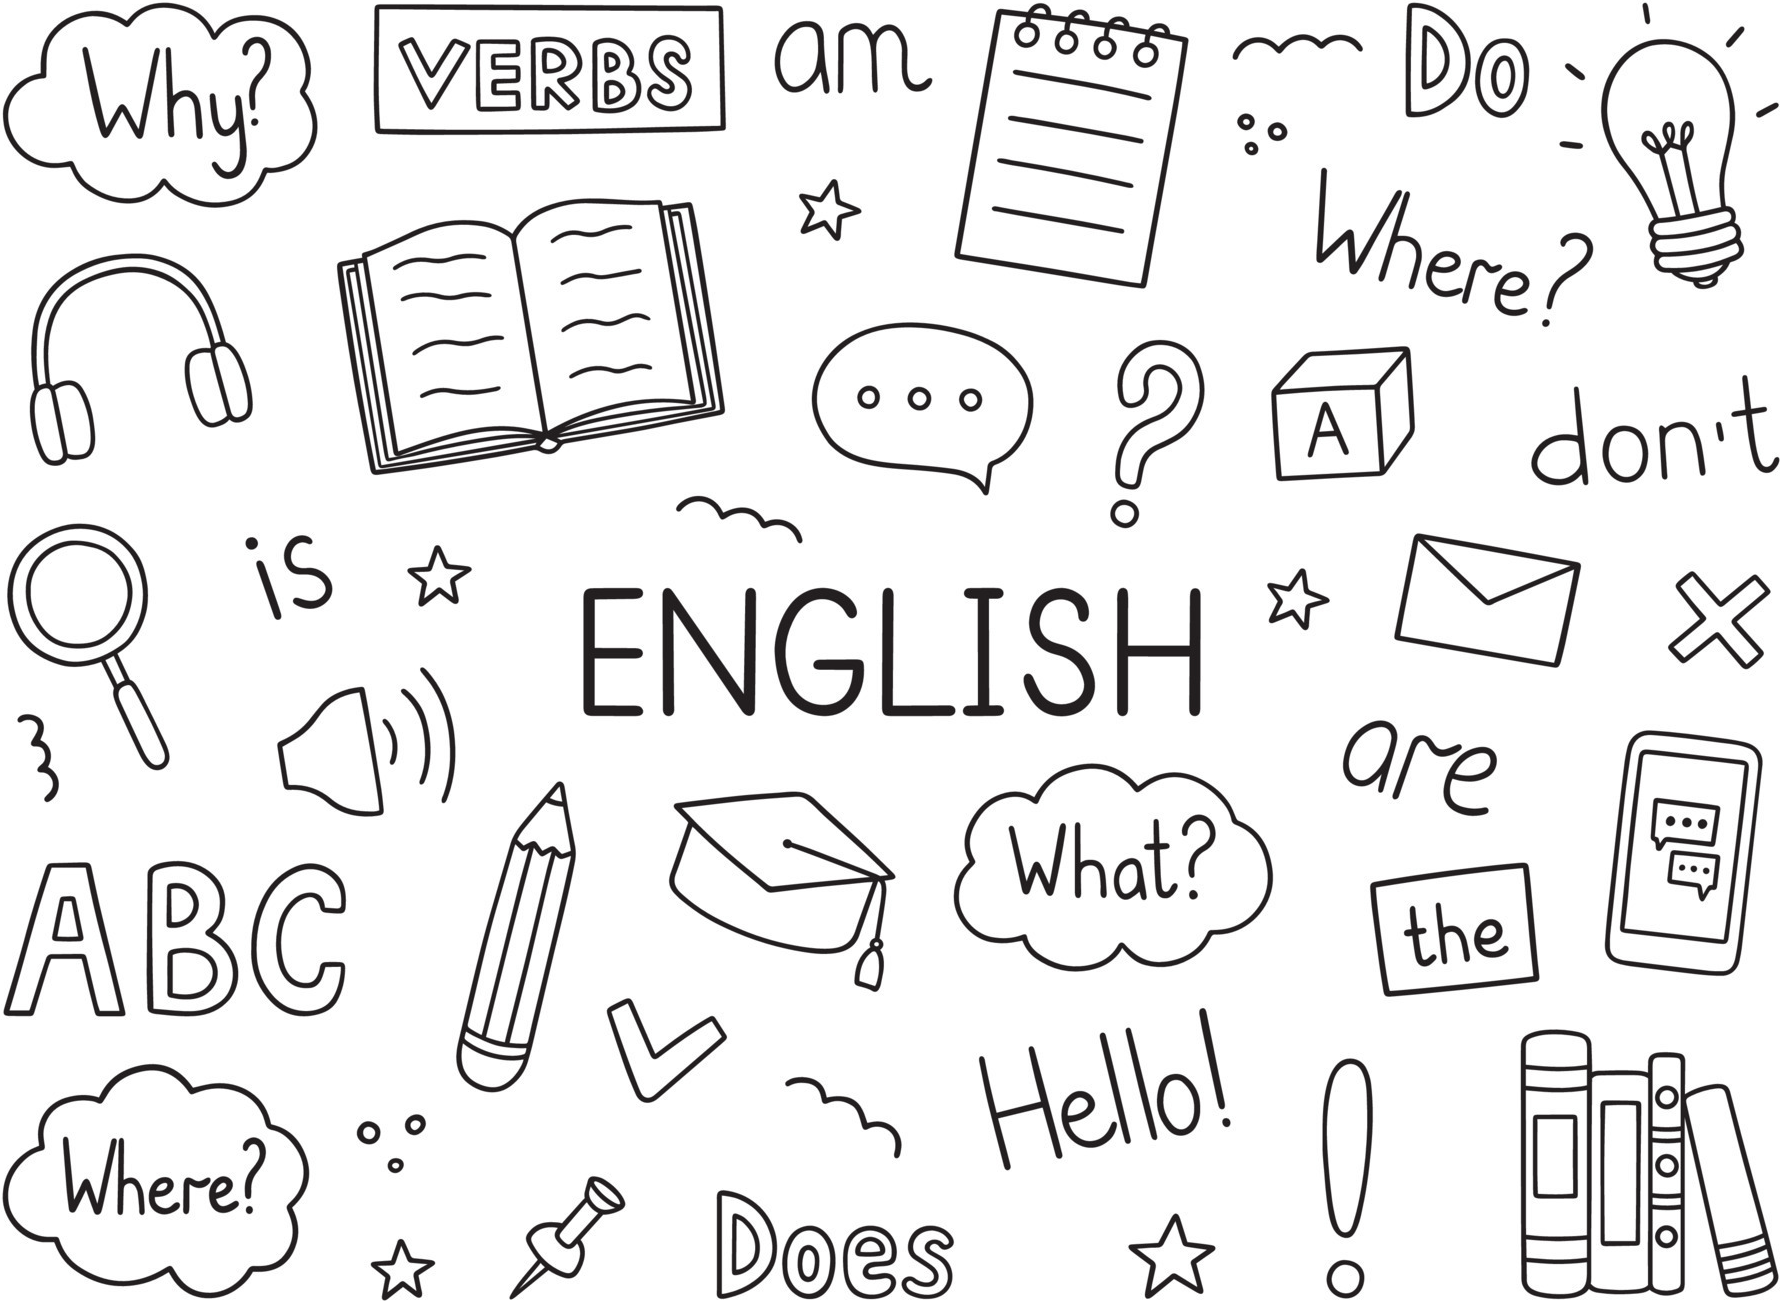 Why?
VERBS
am
Do
Where?
A
don't
is
ENGLISH
are
What?
ABC
the
Hello!
Where?
Does